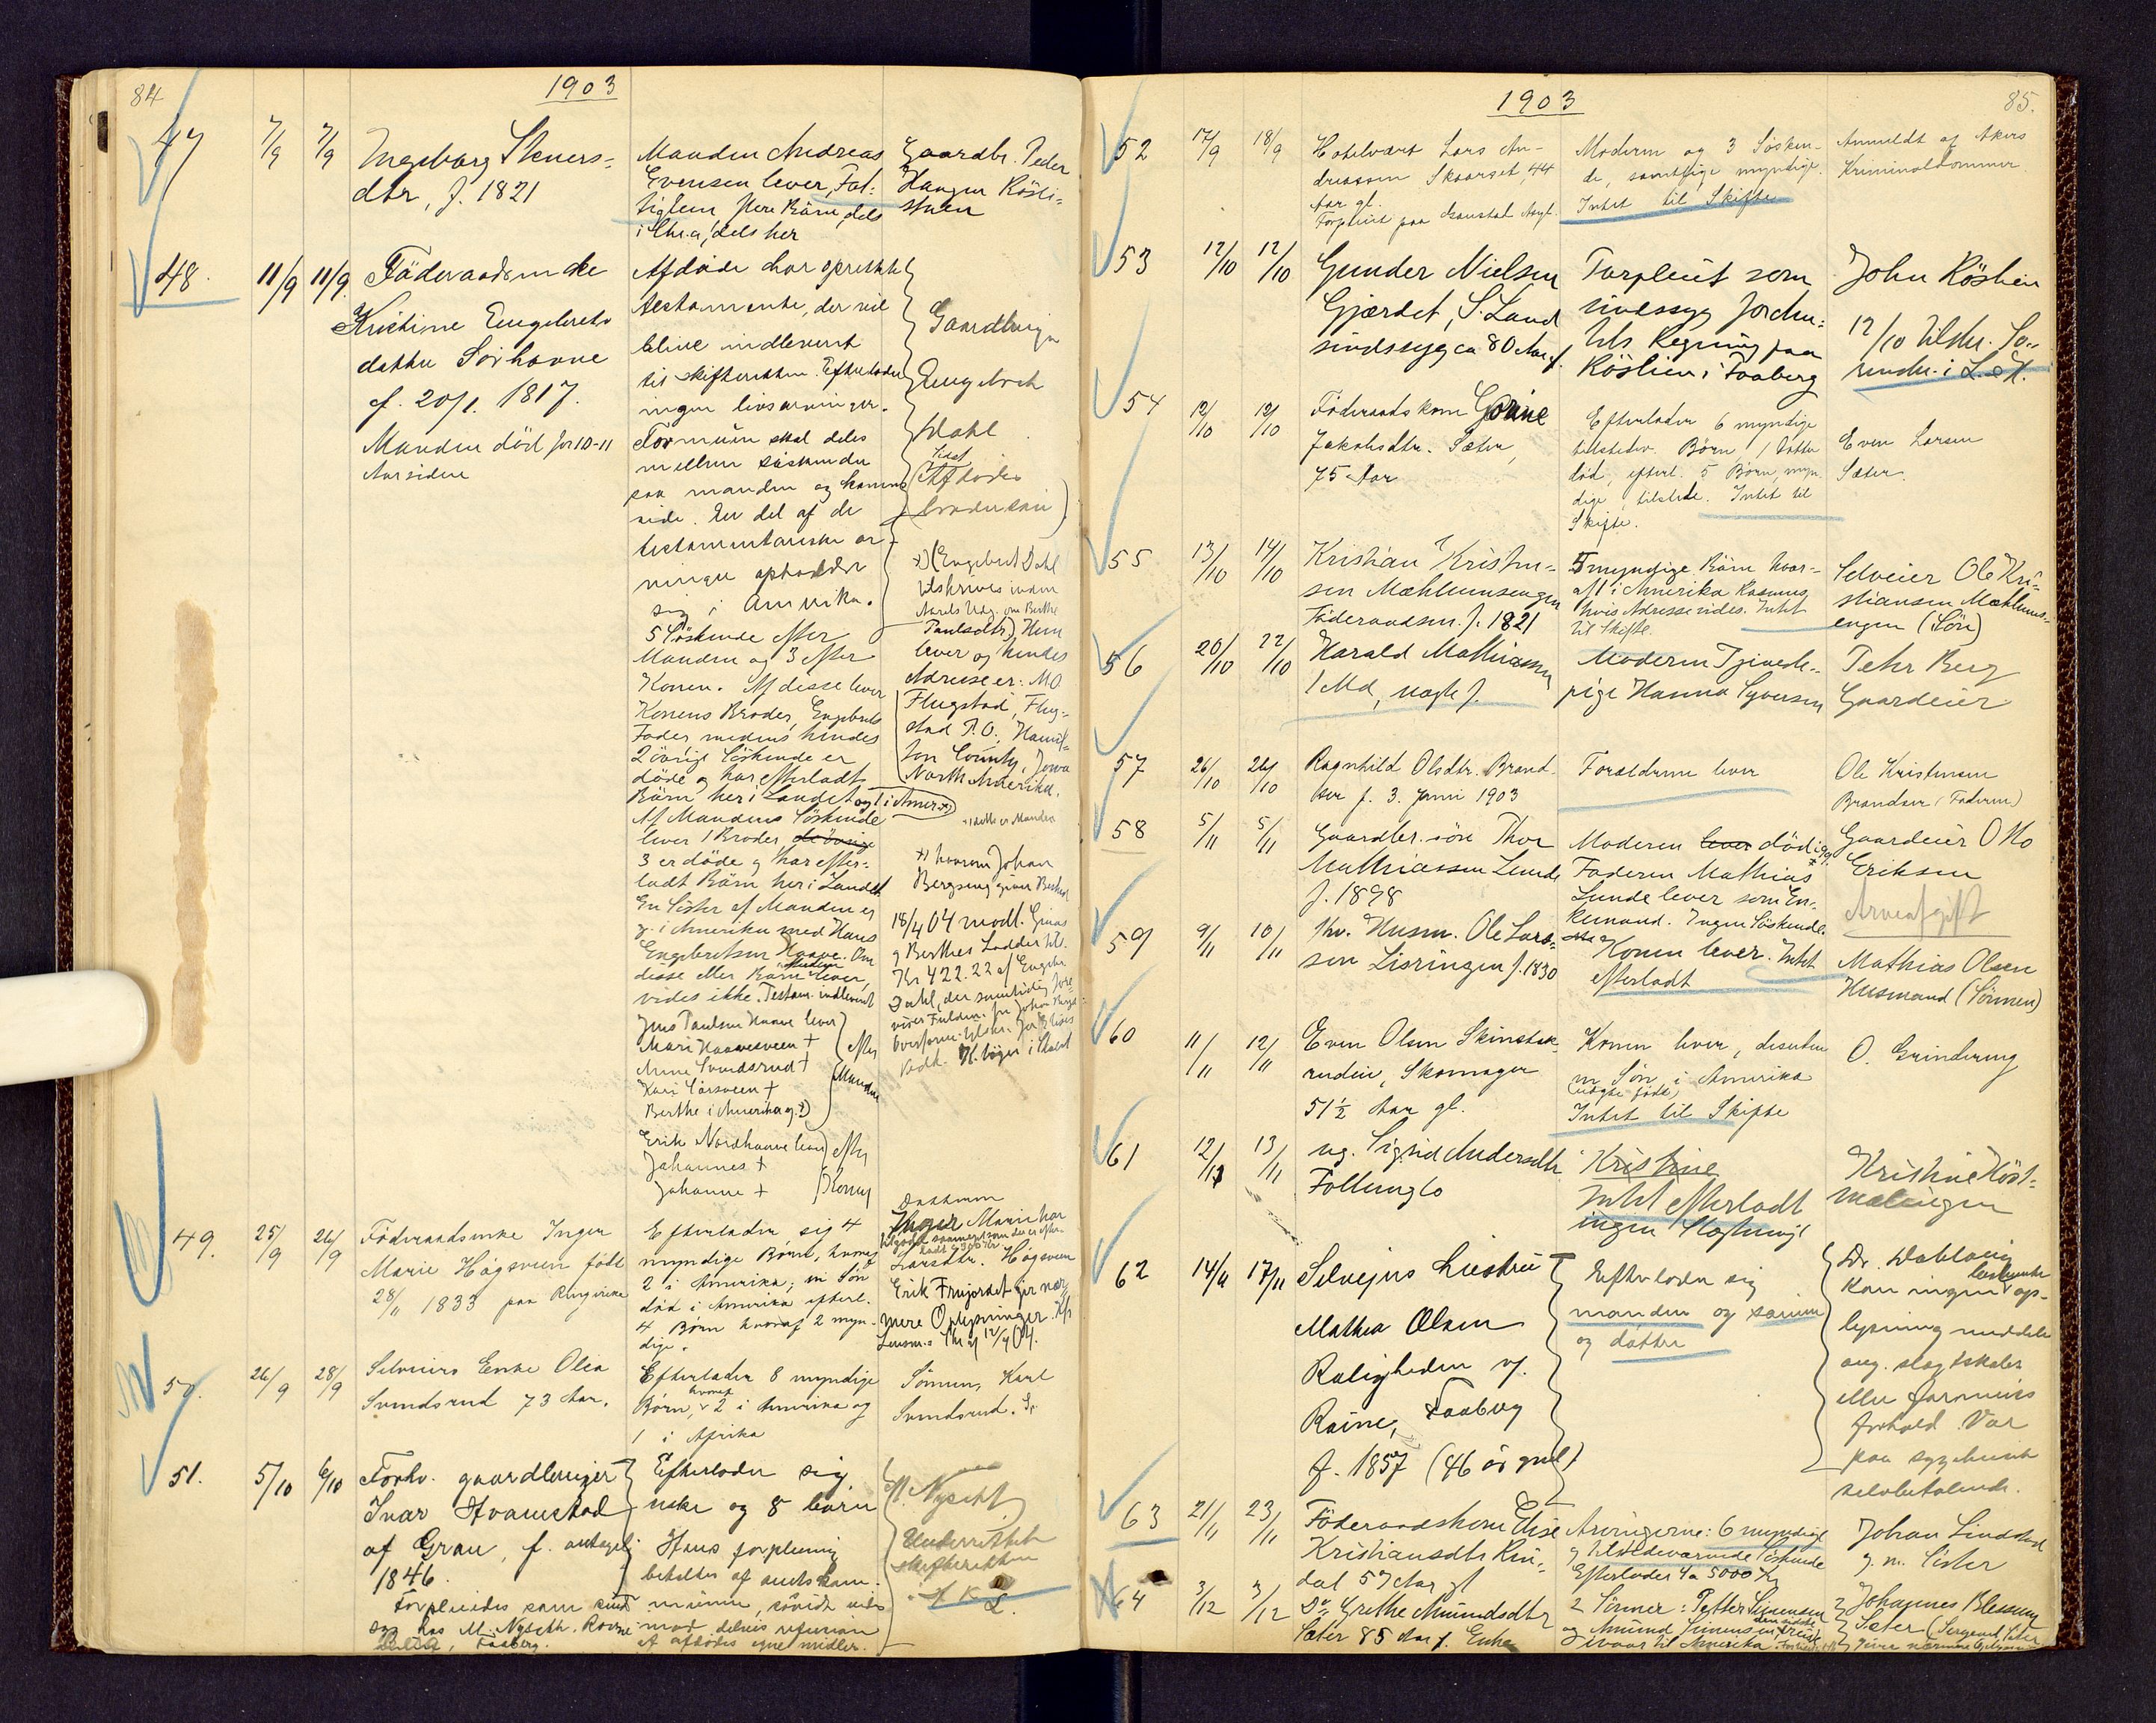 84
1903
47
7/9
7/9
Ingeborg Steners-
dtr, f. 1821
Manden Andreas
Evensen lever, Fat-
tiglem flere Börn, dels
i Chr.a, dels her
Gaardbr. Peder
Haugen Rösli-
stuen
48.
11/9
11/9.
Föderaadsenke
Kristine Engebrets
datter Sörhovve
f. 20/1. 1817.
Manden död for 10-11
Aar siden
Afdöde har oprettet
testamente, der vil
blive indleveret
til skifteretten. Efterlader
ingen livsarvinger.
Formuen skal deles
mellem söskende
paa manden og konens
side. En del af de
testamentariske ar-
vinger opholder
sig i Amerika.
5 Söskende efter
Manden og 3 efter
Konen. Af disse lever
Konens Broder, Engebrets
Fader medens hendes
2 övrige Söskende er
döde og har efterladt
Börn her i Landet og 1 i Amer. x)
Af Mandens Söskende
lever 1 Broder de övrige
3 er döde og har efter-
ladt Börn her i Landet
En Söster af Manden er
g. i Amerika med Hans
Engebretsen Haave. Om
disse eller Börn lever,
vides ikke. Testam. indleveret
Jens Paulsen Haave lever
Mari Haavesveen +
Anne Svendsrud +
Kari Sörsveen +
Berthe i Amerika g. x)
efter
Manden
Erik Nordhaave lever
Johannes +
Johanne +
efter
Konen
Gaardbruger
Engebret
Dahl
(Afdödes
brodersön)
x) (Engebret Dahl
tilskrives inden
Aarets Udg. om Berthe
Paulsdtr), Hun
lever og hendes
Adresse er: M.O.
Flugstad, Flug-
stad P.O., Hamil-
ton County, Jowa
North Amerika.
x) hvorom Johan
Bergseng giver Besked
18/4 04 modt. Ginas
og Berthes Lodder til.
Kr 422.22 af Engebr.
Dahl, der samtidig fore-
viser Fuldm. fra Johan Bergs.
49.
25/9
26/9
Föderaadsenke Inger
Marie Högsveen född
28/11 1833 paa Ringerike
Efterlader sig 4
myndige Börn, hvoraf
2 i Amerika; en Sön
död i Amerika efterl.
4 Börn hvoraf 2 myn-
dige.
Inger Marie har
Larsdtr. Högsveen
Erik Frujordet gir nær-
mere Oplysninger.
50.
26/9
28/9
Selveiers Enke Olea
Svendsrud 73 Aar.
Efterlader 8 myndige
Börn, hvoraf 2 i Amerika og
1 i Afrika
Sönnen, Karl
Svendsrud.
51.
5/10
6/10
Forhv. gaardbruger
Ivar Hvamstad
af Gran, f. antagelig
1846.
Forpleiedes som sind
syg hos M. Nyseth, Roine
Faaberg.
Efterlader sig
enke og 8 börn
Hans forpleining
betaltes af amtskom-
munen, saavidt vides
mod delvis refusion
af afdödes egne midler.
M. Nyseth
Underrettet
skifteretten
1903
85.
52
17/9
18/9
Hotelvært Lars An-
dreassen Skaarset, 44
Aar gl.
Forpleiet paa Gaustad Asyl.
Moderen og 3 Sösken-
de, samtlige myndige.
Intet til Skifte
Anmeldt af Akers
Kriminaldommer
53
12/10
12/10
Gunder Nielsen
Gjærdet, S. Land
sindssyg ca 80 Aar gl.
Forpleiet som
sindssyg for Amtets Regning paa
Röslien i Faaberg
John Röslien
12/10 tilskr. So-
renskr. i L. & H.
54
12/10
12/10
Föderaadskone Gorine
Jakobsdtr. Sæter,
75 Aar
Efterlader 6 myndige
tilstedev. Börn, 1 Datter
död, efterl. 5 Börn, myn-
dige, tilstede. Intet til
Skifte.
Even Larsen
Sæter.
55
13/10
14/10
Kristian Kristen-
sen Mæhlumsengen
Föderaadsm. f. 1821
5 myndige Börn hvor-
af 1 i Amerika Rasmus
hvis Adresse vides. Intet
til Skifte.
Selveier Ole Kri-
stiansen Mæhlums-
engen (Sön)
56
20/10
22/10
Harald Mathiassen
1 Md, uægte f.
Moderen Tjeneste-
pige Hanna Syversen
Peter Berg
Gaardeier
57
26/10
26/10
Ragnhild Olsdtr. Brand-
ser f. 3. Juni 1903
Forældrene lever
Ole Kristensen
Brandser (Faderen)
58
5/11
5/11
Gaardbr. sön Thor
Mathiassen Lunde
f. 1898
Moderen lever död igg.
Faderen Mathias
Lunde lever som En-
kemand. Ingen Söskende.
Gaardeier Otto
Eriksen
Arveafgift
59
9/11
10/11
fhv. Husm. Ole Lars-
sen Lisringen f. 1830
Konen lever. Intet
efterladt
Mathias Olsen
Husmand (Sönnen)
60
11/11
12/11
Even Olsen Skinstak-
rudeie, Skomager
51 1/2 Aar gl.
Konen lever, desuden
en Sön i Amerika
(uægte födt)
Intet til Skifte
O. Grindereng
61
12/11
13/11
ug. Sigrid Andersdtr.
Follunglo
Kristine
Intet efterladt
ingen Slægtninge
Kristine Röst-
mælingen
62
14/11
17/11
Selvejers hustru
Mathea Olsen
Roligheden v/.
Roine, Faaberg
f. 1857 (46 år gml)
Efterlader sig
manden og sönner
og döttre
Dr.
kan ingen bestemte op-
lysning meddele
ang. slægtskabs
eller formues
forhold. Var
paa sygehuset
selvbetalende.
63
21/11
23/11
Föderaadskone Elise
Kristiansdtr Rin-
dal 57 Aar gl
Arvingerne: 6 myndige
og tilstedeværende Söskende
Efterlader Ca 5000 Kr
Johan Lindstad
g. m. Söster
64
3/12
3/12
Do Grethe Amundsdtr
Sæter 85 Aar gl. Enke
2 Sönner: Petter Simensen
og Amund Simensen
til Amerika.
Johannes Blessum
Sæter (Sergeant Sæter